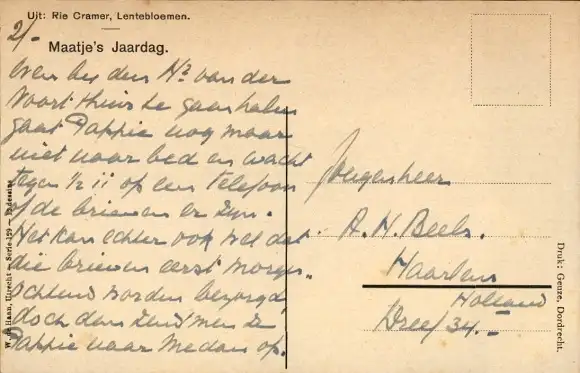 Uit: Rie Cramer, Lentebloemen.
2/-
Maatje's Jaardag.
Even bij den Hr van der
Voort thuis te gaan halen
gaat Pappie nog maar
niet naar bed en wacht
tegen ½ 11 op een telefoon
of de brieven er zijn.
Het kan echter ook wel dat
die brieven eerst morgen
ochtend worden bezorgd,
doch dan zend men ze
Pappie naar Medan op.
Jongenheer
A. H. Beels.
Haarlem
Holland
Dreef 34.-
W. de Haan, Utrecht — Serie 159 — Indessine
Druk: Geuze, Dordrecht.